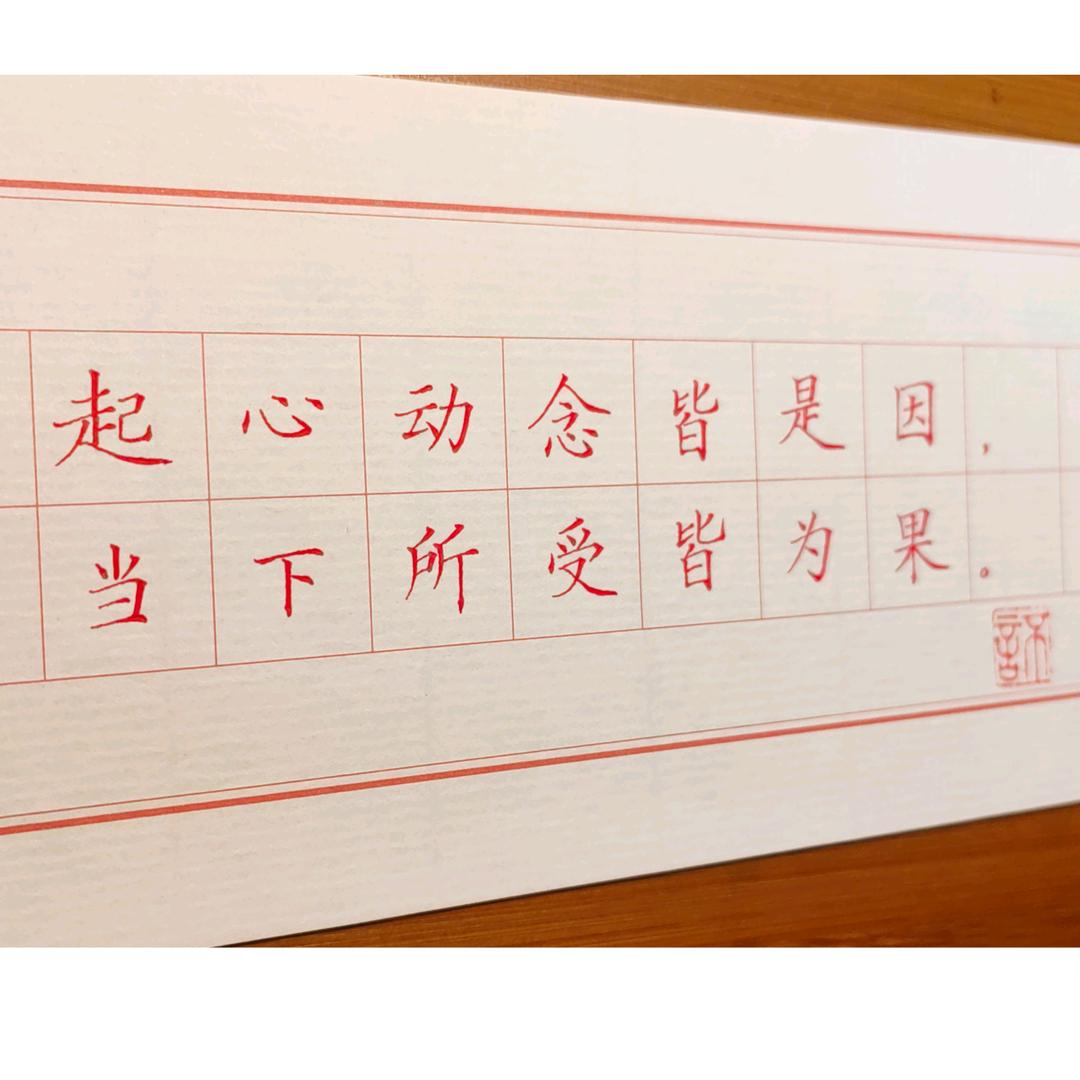 起心动念皆是因，
当下所受皆为果。